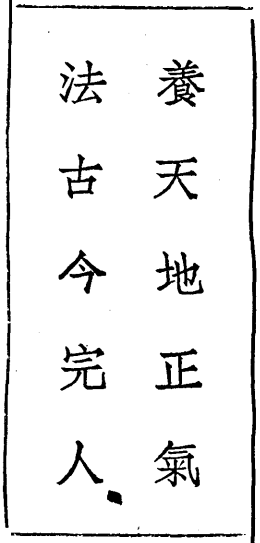 養天地正氣
法古今完人